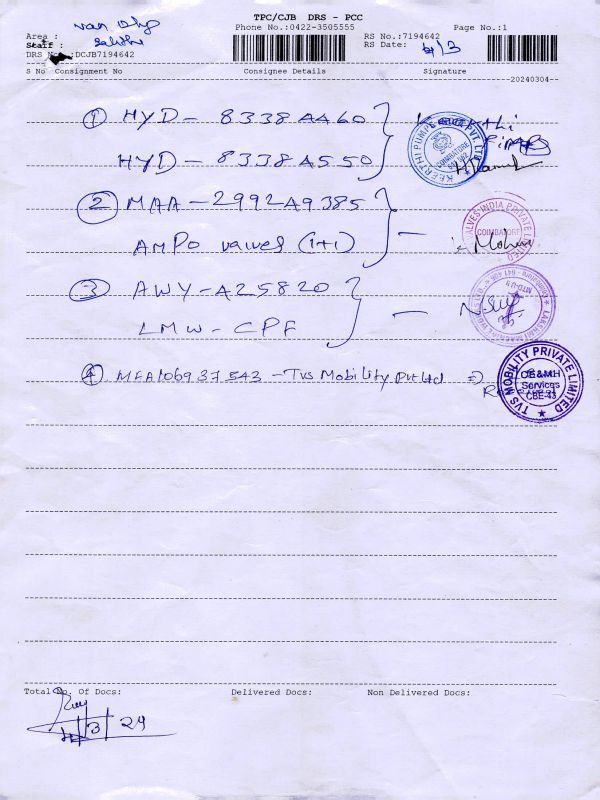 TPC/CJB DRS - PCC
van
Phone No.:0422-3505555
Page No.:1
Area :
Staff : Sakthi
RS No.:7194642
RS Date: 4/3
DRS No.:DCJB7194642
S No Consignment No Consignee Details Signature
--20240304--
① HYD - 8338A460
HYD - 8338A550
KEERTHI PUMPS PVT. LTD.
COIMBATORE
② MAA - 2992A9385
AMPO valves (1+1)
ALVES INDIA PRIVATE LIMITED
COIMBATORE
Mohan
③ AWY - A25820
LMW - CPF
④ MFA106937543 - TVS Mobility Pvt Ltd
TVS MOBILITY PRIVATE LIMITED
CE&MH
Services
CBE-43
Total No. Of Docs: Delivered Docs: Non Delivered Docs:
4/3/24